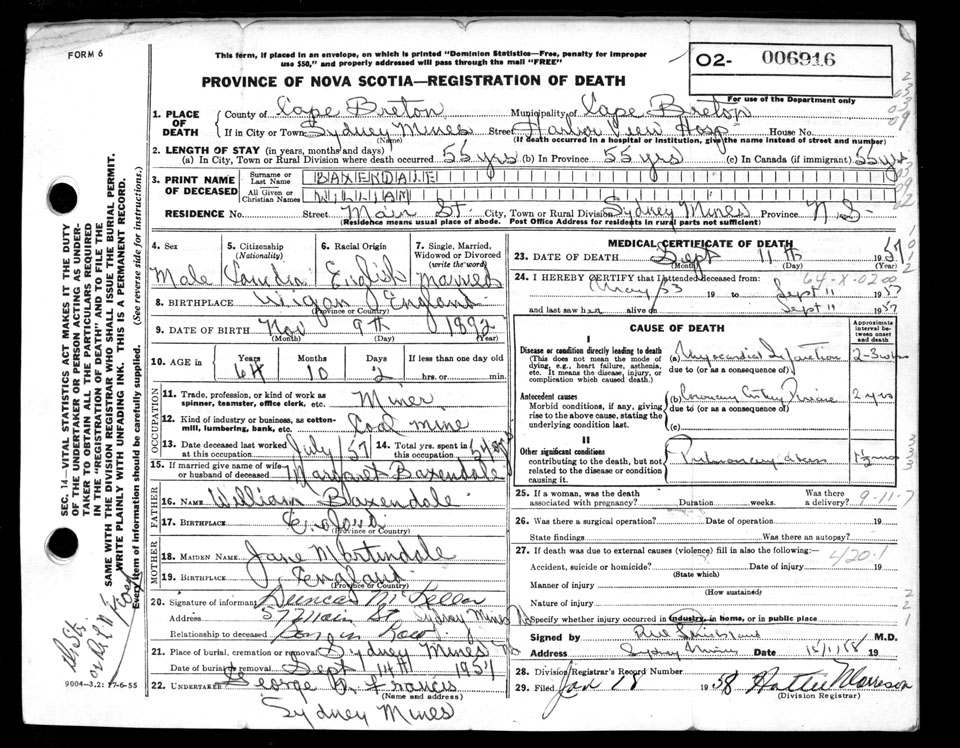 FORM 6
This form, if placed in an envelope, on which is printed "Dominion Statistics—Free, penalty for improper
use $50," and properly addressed will pass through the mail "FREE"
O2- 006916
PROVINCE OF NOVA SCOTIA—REGISTRATION OF DEATH
For use of the Department only
1. PLACE OF DEATH
County of Cape Breton Municipality of Cape Breton
If in City or Town Sydney Mines Street Harbor View Hosp House No.
(Name) (If death occurred in a hospital or institution, give the name instead of street and number)
2. LENGTH OF STAY (in years, months and days)
(a) In City, Town or Rural Division where death occurred 55 yrs (b) in Province 55 yrs (c) In Canada (if immigrant) 55 yrs
3. PRINT NAME OF DECEASED
Surname or Last Name BAXENDALE
All Given or Christian Names WILLIAM
RESIDENCE No. Street Main St City, Town or Rural Division Sydney Mines Province N S
(Residence means usual place of abode. Post Office Address for residents in rural parts not sufficient)
4. Sex 5. Citizenship (Nationality) 6. Racial Origin 7. Single, Married, Widowed or Divorced (write the word)
Male English Married
8. BIRTHPLACE Wigan England
(Province or Country)
9. DATE OF BIRTH Nov 9th 1892
(Month) (Day) (Year)
10. AGE in Years Months Days If less than one day old
64 10 2 hrs. or min.
OCCUPATION
11. Trade, profession, or kind of work as spinner, teamster, office clerk, etc. Miner
12. Kind of industry or business, as cotton-mill, lumbering, bank, etc. Coal mine
13. Date deceased last worked at this occupation July/57 14. Total yrs. spent in this occupation
15. If married give name of wife or husband of deceased Margaret Baxendale
FATHER
16. Name William Baxendale
17. Birthplace England
(Province or Country)
MOTHER
18. Maiden Name Jane Martindale
19. Birthplace England
(Province or Country)
20. Signature of informant Duncan McKellar
Address 57 Main St Sydney Mines NS
Relationship to deceased Son in Law
21. Place of burial, cremation or removal Sydney Mines NS
Date of burial or removal Sept 14th 1957
22. Undertaker George Francis
(Name and address)
Sydney Mines
MEDICAL CERTIFICATE OF DEATH
23. DATE OF DEATH Sept 11th 1957
(Month) (Day) (Year)
24. I HEREBY CERTIFY that I attended deceased from:
May/53 19 to Sept 11 1957
and last saw h alive on Sept 11 1957
64-X-0200
CAUSE OF DEATH
Approximate interval between onset and death
I
Disease or condition directly leading to death
(This does not mean the mode of dying, e.g., heart failure, asthenia, etc. It means the disease, injury, or complication which caused death.)
(a) Myocardial Infarction
due to (or as a consequence of)
Antecedent causes
Morbid conditions, if any, giving rise to the above cause, stating the underlying condition last.
(b) Coronary Artery Disease 2 yrs
due to (or as a consequence of)
II
Other significant conditions
contributing to the death, but not related to the disease or condition causing it.
Pulmonary
25. If a woman, was the death associated with pregnancy? Duration weeks. Was there a delivery? 9-11-7
26. Was there a surgical operation? Date of operation 19
State findings Was there an autopsy?
27. If death was due to external causes (violence) fill in also the following:
420.1
Accident, suicide or homicide? Date of injury 19
(State which)
Manner of injury
(How sustained)
Nature of injury
Specify whether injury occurred in industry, in home, or in public place
Signed by M.D.
Address Sydney Mines Date 15/1/58 19
28. Division Registrar's Record Number
29. Filed Jan 18 1958 Hattie Morrison
(Division Registrar)
SEC. 14—VITAL STATISTICS ACT MAKES IT THE DUTY
OF THE UNDERTAKER OR PERSON ACTING AS UNDER-
TAKER TO OBTAIN ALL THE PARTICULARS REQUIRED
IN THE "REGISTRATION OF DEATH" AND TO FILE THE
SAME WITH THE DIVISION REGISTRAR WHO SHALL ISSUE THE BURIAL PERMIT.
WRITE PLAINLY WITH UNFADING INK. THIS IS A PERMANENT RECORD.
Every item of information should be carefully supplied. (See reverse side for instructions.)
9004-3.2: 17-6-55